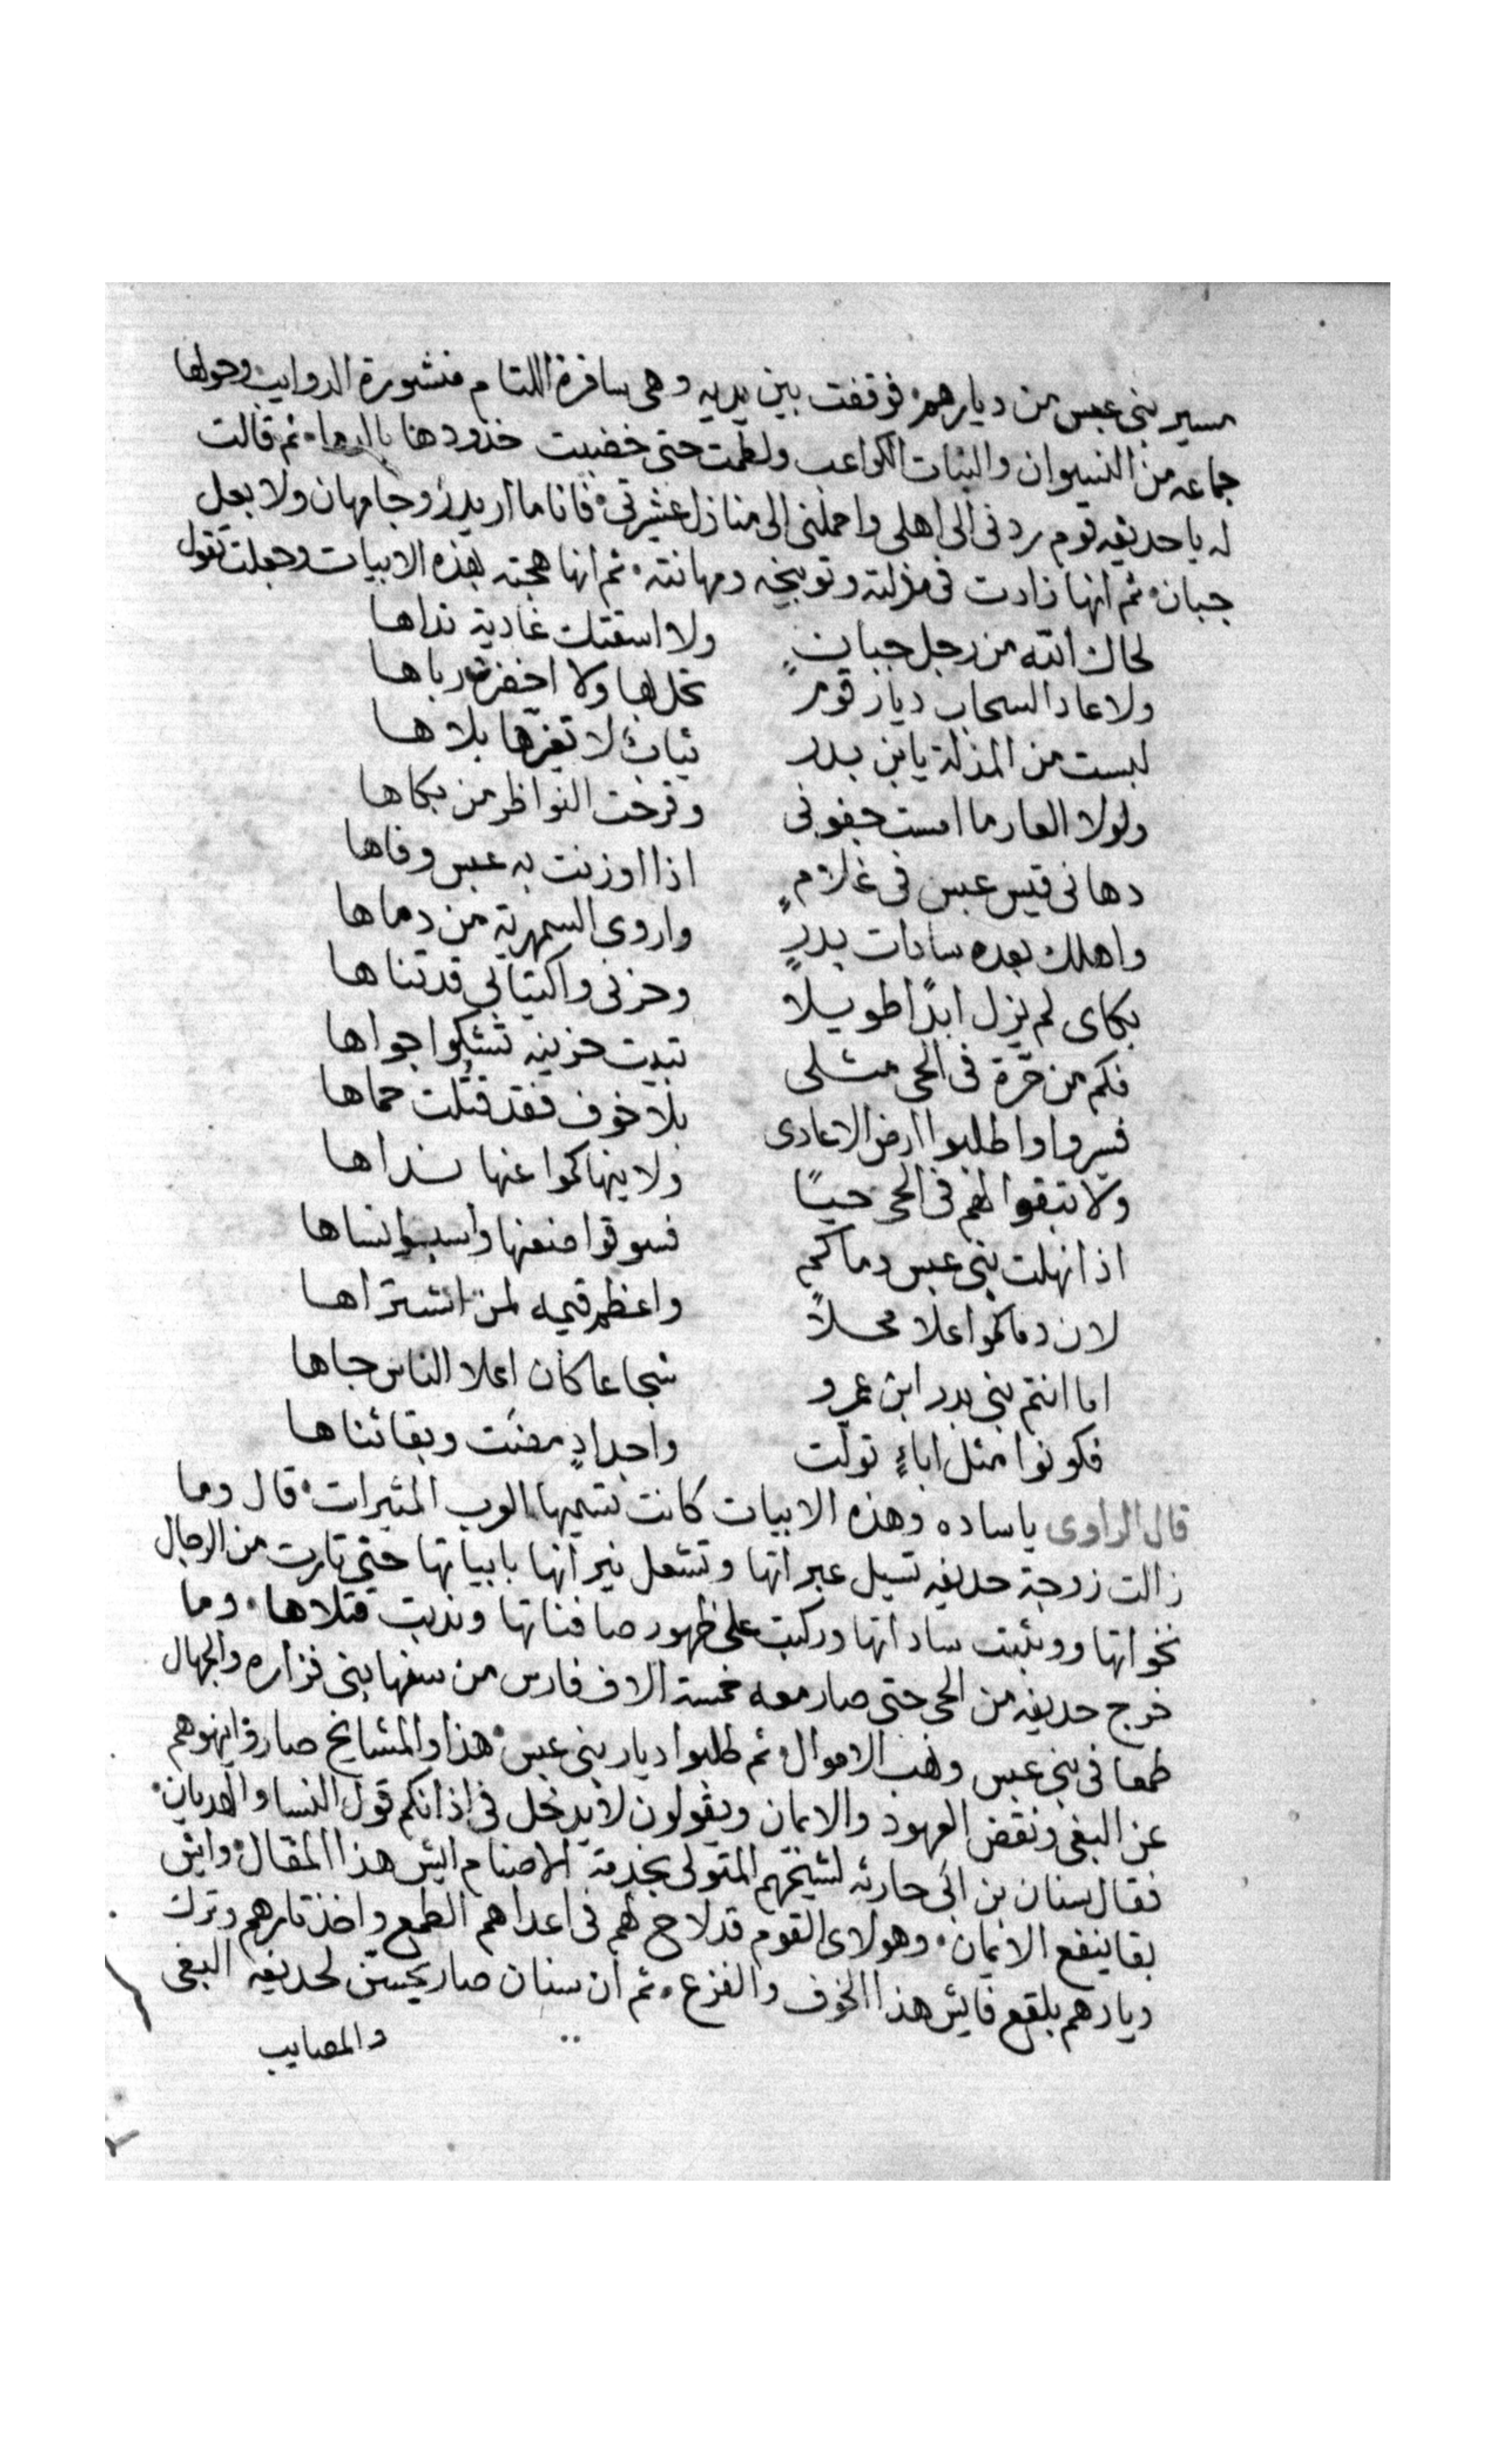 مسير بنى عبس من ديارهم فوقفت بين يديه وهى سافرة اللتام منشورة الدوايب وحولها
جماعه من النسوان والبنات الكواعب ولطمت حتى خضبت خدودها بالدما ثم قالت
له يا حديفه قوم ردنى الى اهلى واحملنى الى منازل عشيرتى فانا ما اريد زوجا مهان ولا بعل
جبان ثم انها زادت فى مذلته وتوبيخه ومهانته ثم انها هجته بهذه الابيات وجعلت تقول
لحاك الله من رجل جبانٍ ولا اسقتك غادية نداها
ولا عاد السحاب ديار قومٍ تحلها ولا اخضرت رباها
لبست من المذلة يا بن بدر ثيابٌ لا تغيرها بلاها
ولولا العار ما امست جفونى وقرحت النواظر من بكاها
دهانى قيس عبس فى غلامٍ اذا اوزنت به عبس وفاها
واهلك بعده سادات بدرٍ واروى السمهرية من دماها
بكاى لم يزل ابدًا طويلا وحزنى واكتيابى قد تناها
فكم من حرّة فى الحى مثلى تبيت حزينه تشكوا جواها
فسيروا واطلبوا ارض الاعادى بلا خوف فقد قتلت حماها
ولا تبقوا لهم فى الحى حيًا ولا ينهاكموا عنها نداها
اذا نهلت بنى عبس دماكم فسوقوا ضعنها واسبوا نساها
لان دماكموا اعلا محلاً واعظم قيمه لمن اشتراها
اما انتم بنى بدر ابن عمرو شجاعا كان اعلا الناس جاها
فكونوا مثل اباءٍ تولت واجدادٍ مضت وبقا ثناها
قال الراوى يا ساده وهذه الابيات كانت تسميها العرب المثيرات قال وما
زالت زوجة حديفه تسيل عبراتها وتشعل نيرانها بابياتها حتى تارت من الرجال
نخواتها ووثبت ساداتها وركبت على ظهور صافناتها وندبت قتلاها وما
خرج حديفه من الحى حتى صار معه خمسة الاف فارس من سفها بنى فزاره والجهال
طمعا فى بنى عبس ونهب الاموال ثم طلبوا ديار بنى عبس هذا والمشايخ صاروا ينهوهم
عن البغى ونقض العهود والايمان ويقولون لا يدخل فى اذانكم قول النسا والهديان
فقال سنان بن ابى حارثه لشيخهم المتولى بخدمة الاصنام ايش هذا المقال وايش
بقا ينفع الايمان وهولاى القوم قد لاح لهم فى اعداهم الطمع واخذ تارهم وترك
ديارهم بلقع فايش هذا الخوف والفزع ثم ان سنان صار يحسّن لحديفه البغى
والمصايب